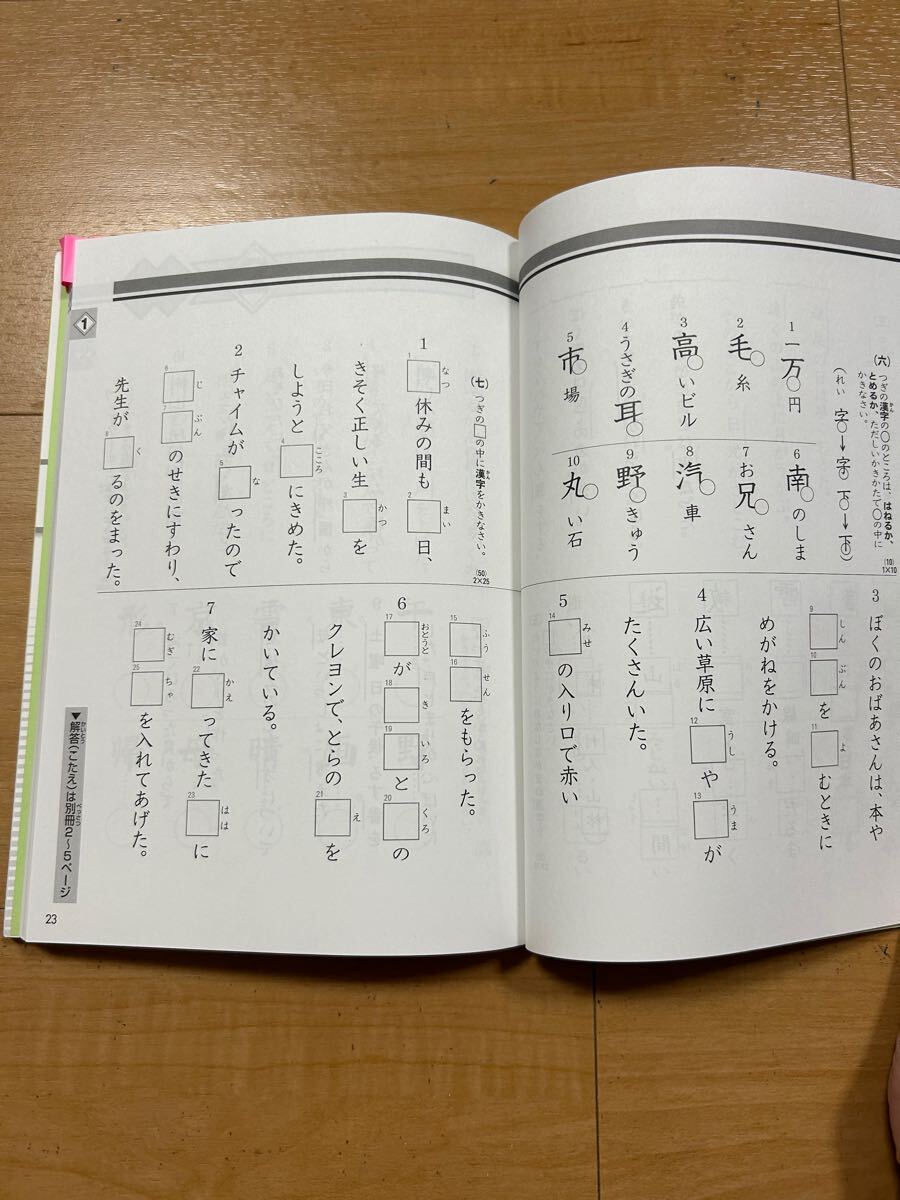 (六) つぎの漢字の○のところは、はねるか、
とめるか、ただしいかきかたで○の中に
かきなさい。
(10)
1×10
(れい 字→字 下→下)
1 一万円
2 毛糸
3 高いビル
4 うさぎの耳
5 市場
6 南のしま
7 お兄さん
8 汽車
9 野きゅう
10 丸い石
(七) つぎの□の中に漢字をかきなさい。
(50)
2×25
1 □休みの間も□日、
1 なつ
2 まい
きそく正しい生□を
3 かつ
しようと□にきめた。
4 こころ
2 チャイムが□ったので
5 な
□□のせきにすわり、
6 じ
7 ぶん
先生が□るのをまった。
8 く
3 ぼくのおばあさんは、本や
□□を□むときに
9 しん
10 ぶん
11 よ
めがねをかける。
4 広い草原に□や□が
12 うし
13 うま
たくさんいた。
5 □の入り口で赤い
14 みせ
□□をもらった。
15 ふう
16 せん
6 □が□□と□の
17 おとうと
18 き
19 いろ
20 くろ
クレヨンで、とらの□を
21 え
かいている。
7 家に□ってきた□に
22 かえ
23 はは
□□を入れてあげた。
24 むぎ
25 ちゃ
1
▼解答(こたえ)は別冊2〜5ページ
23